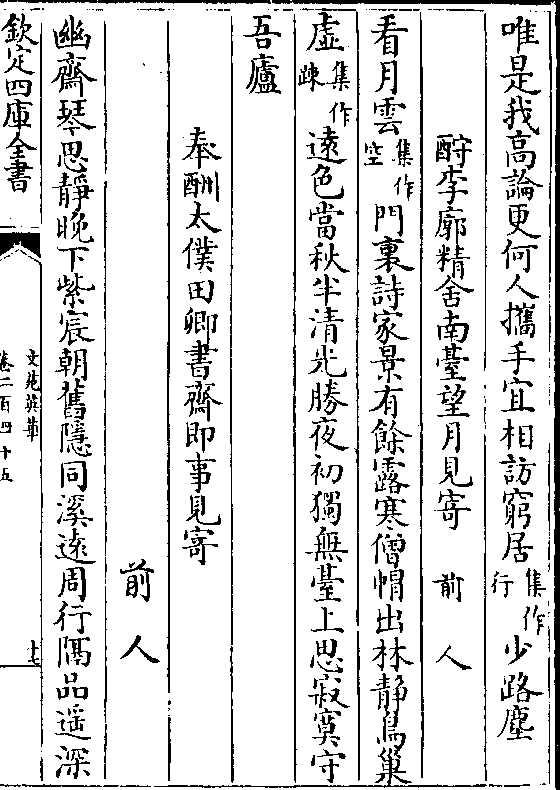 唯是我高論更何人攜手宜相訪窮居集作行少路塵
酧李廓精舍南臺望月見寄 前人
看月雲集作空門裏詩家景有餘露寒僧帽出林静鳥巢
虛集作踈遠色當秋半清光勝夜初獨無臺上思寂寞守
吾廬
奉酬太僕田卿書齋即事見寄
前人
幽齋琴思静晚下紫宸朝舊隱同溪遠周行隔品遥深
欽定四庫全書
文苑英華
卷二百四十五
十七